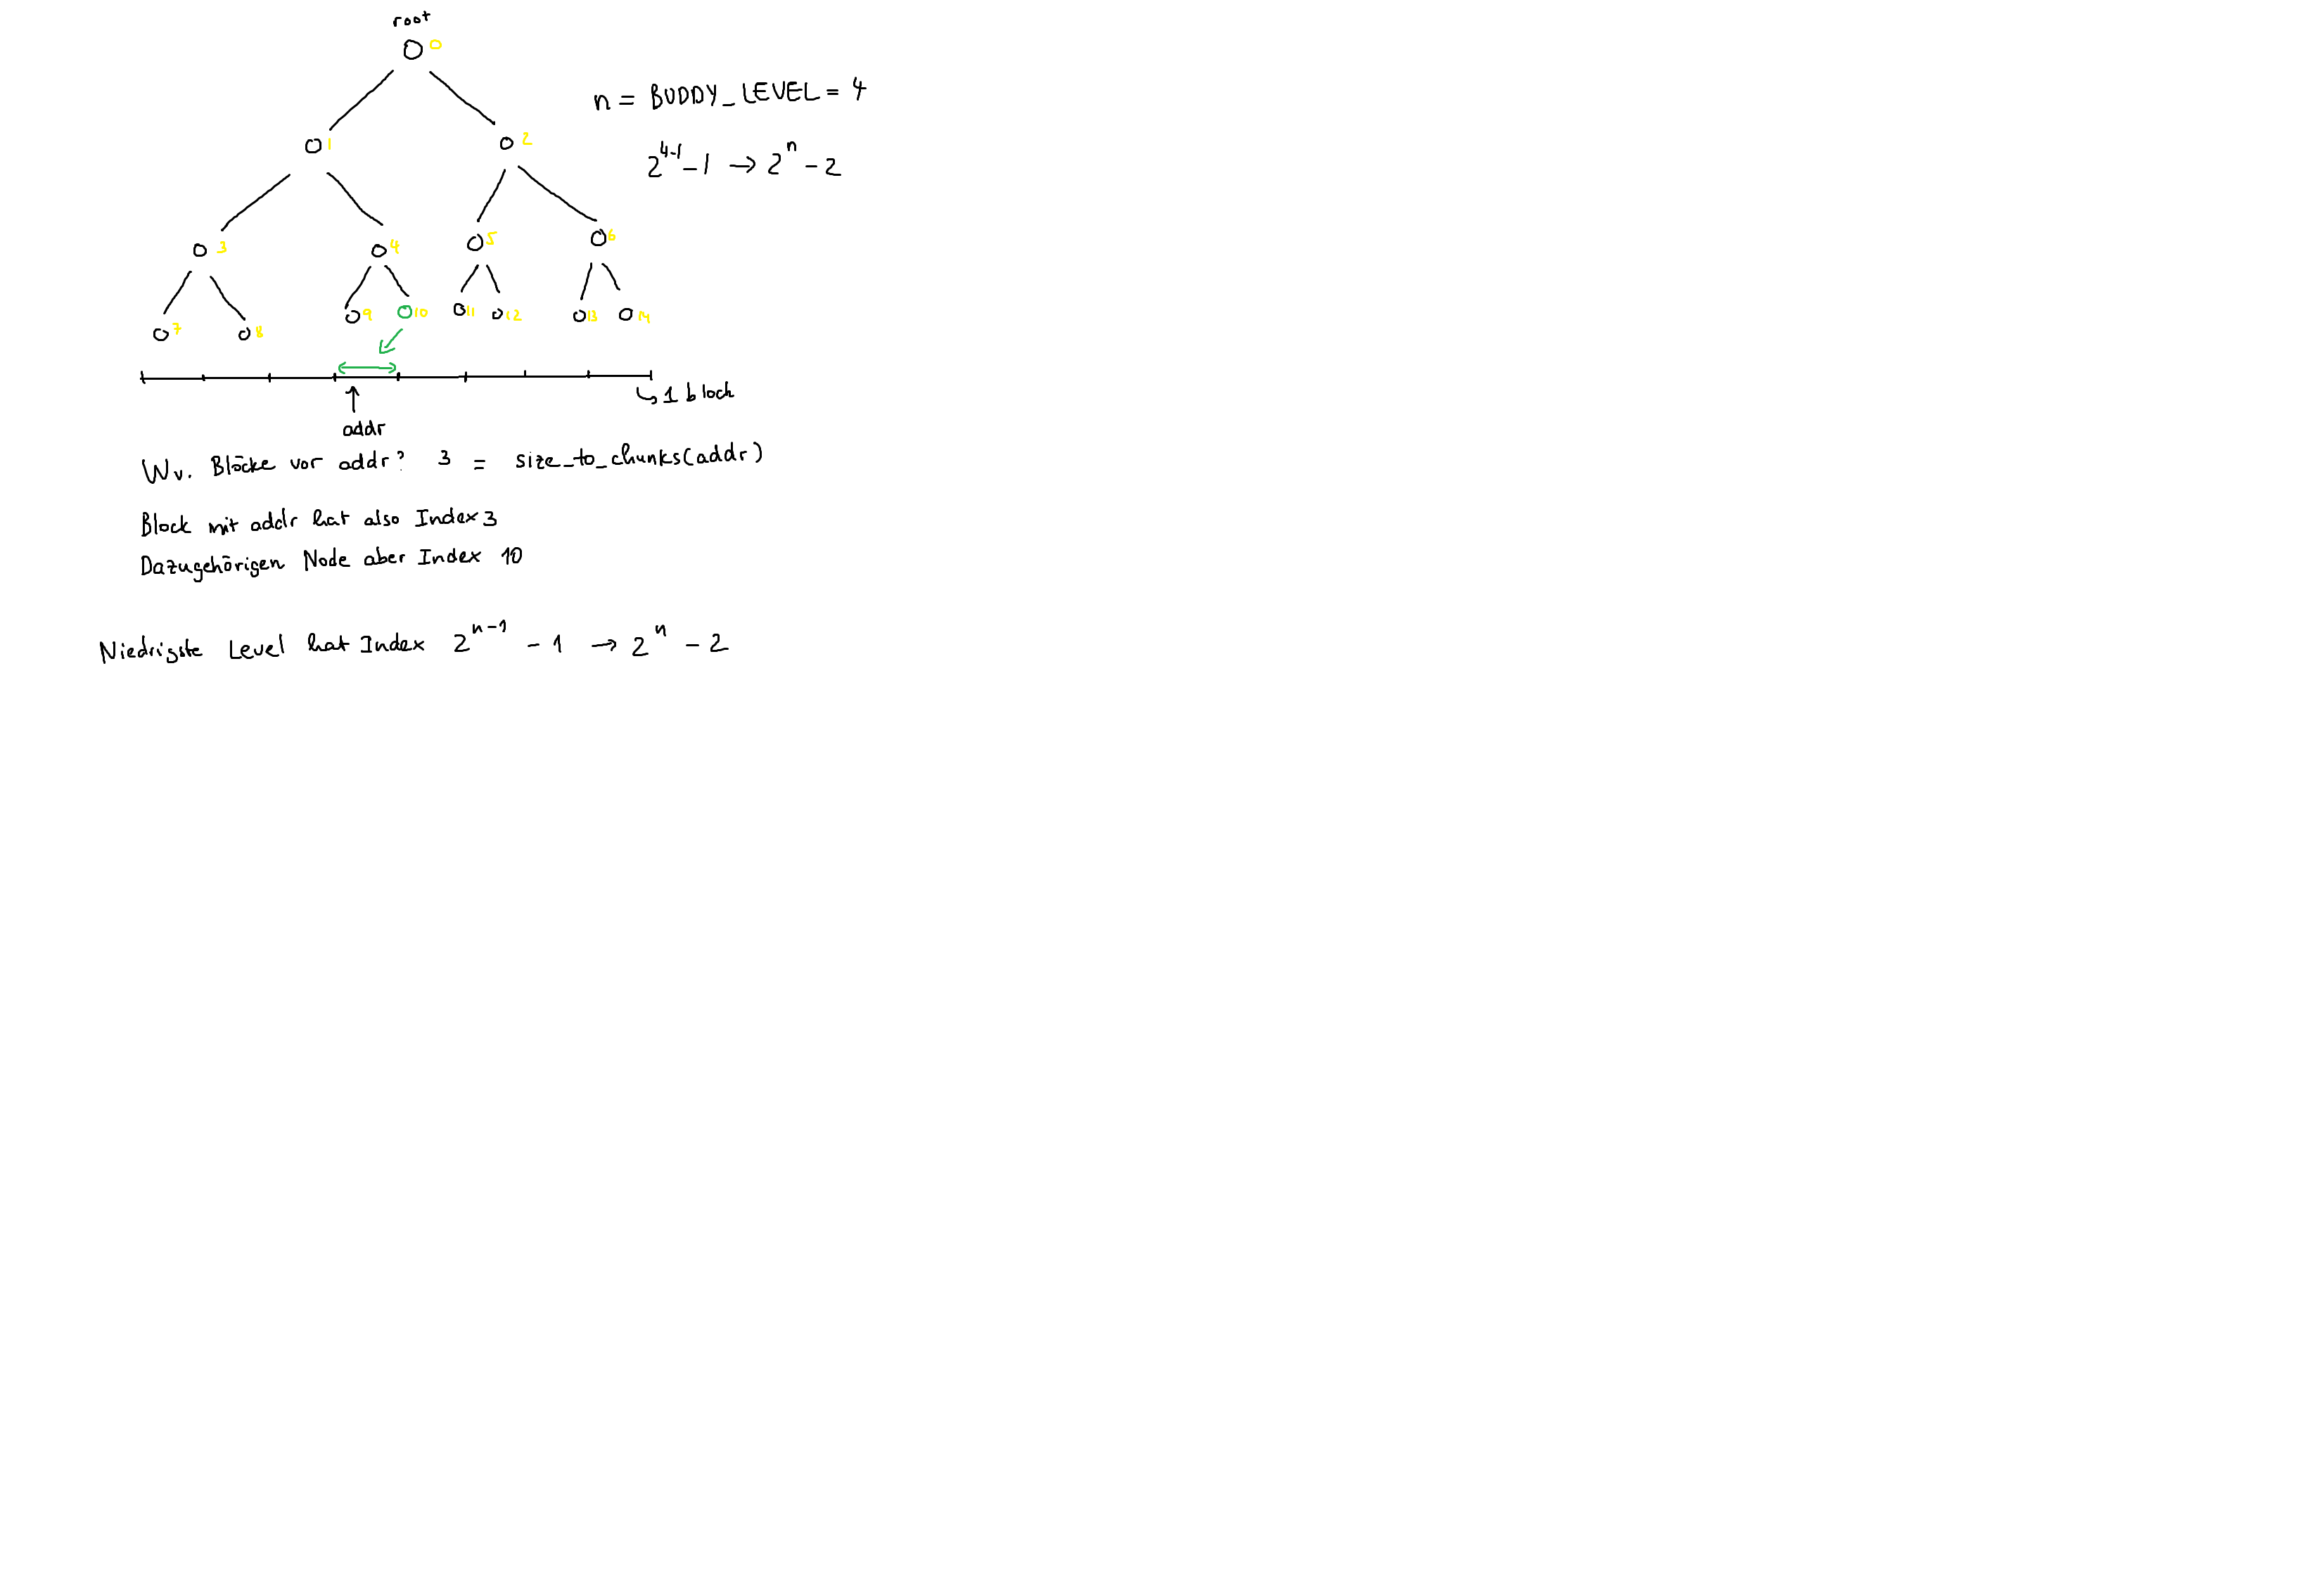 root
0
n = BUDDY_LEVEL = 4
1 2
2^{4-1} - 1 → 2^n - 2
3 4 5 6
7 8 9 10 11 12 13 14
↳ 1 block
addr
Wv. Blöcke vor addr? 3 = size_to_chunks(addr)
Block mit addr hat also Index 3
Dazugehörigen Node aber Index 10
Niedrigste Level hat Index 2^{n-1} - 1 → 2^n - 2